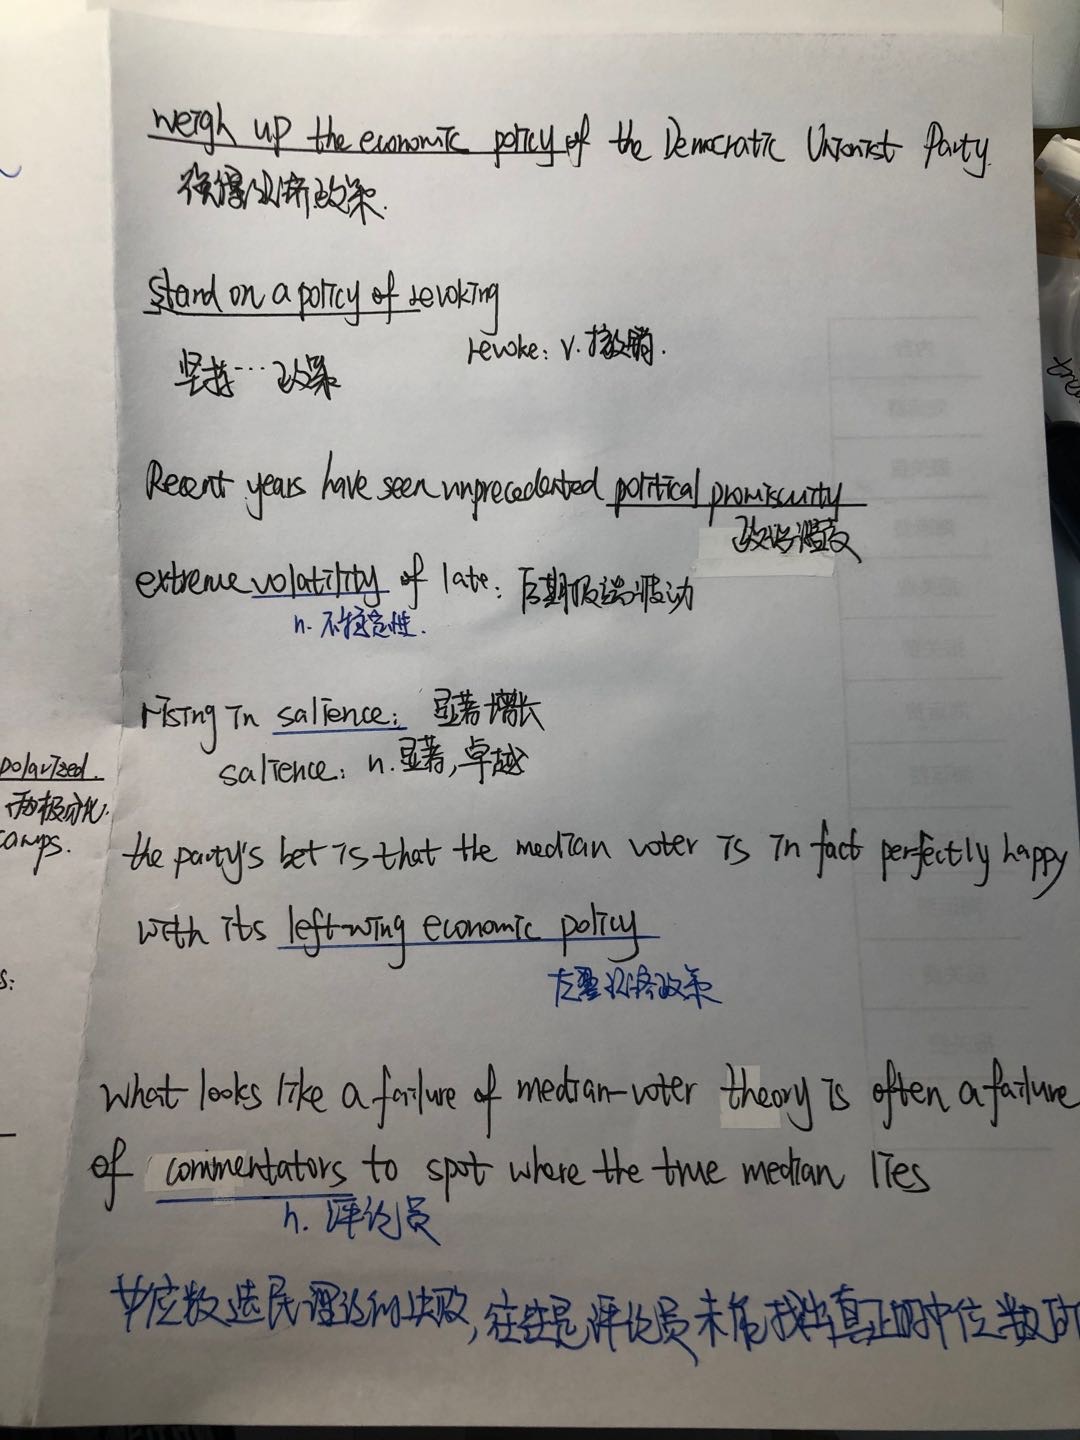 weigh up the economic policy of the Democratic Unionist Party.
权衡经济政策.
stand on a policy of revoking
revoke: v. 撤销.
坚持…政策
Recent years have seen unprecedented political promiscuity
政治滥交
extreme volatility of late: 后期极端波动
n. 不稳定性.
rising in salience: 显著增长
salience: n. 显著, 卓越
polarized.
两极分化.
camps.
the party's bet is that the median voter is in fact perfectly happy
with its left-wing economic policy
左翼经济政策
s:
What looks like a failure of median-voter theory is often a failure
of commentators to spot where the true median lies
n. 评论员
中位数选民理论的失败, 往往是评论员未能找出真正的中位数所